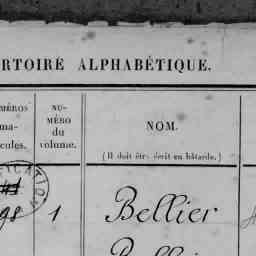 RTOIRE ALPHABÉTIQUE.
MÉROS
ma-
cules.
NU-
MÉRO
du
volume.
NOM.
(Il doit être écrit en bâtarde.)
1
Bellier